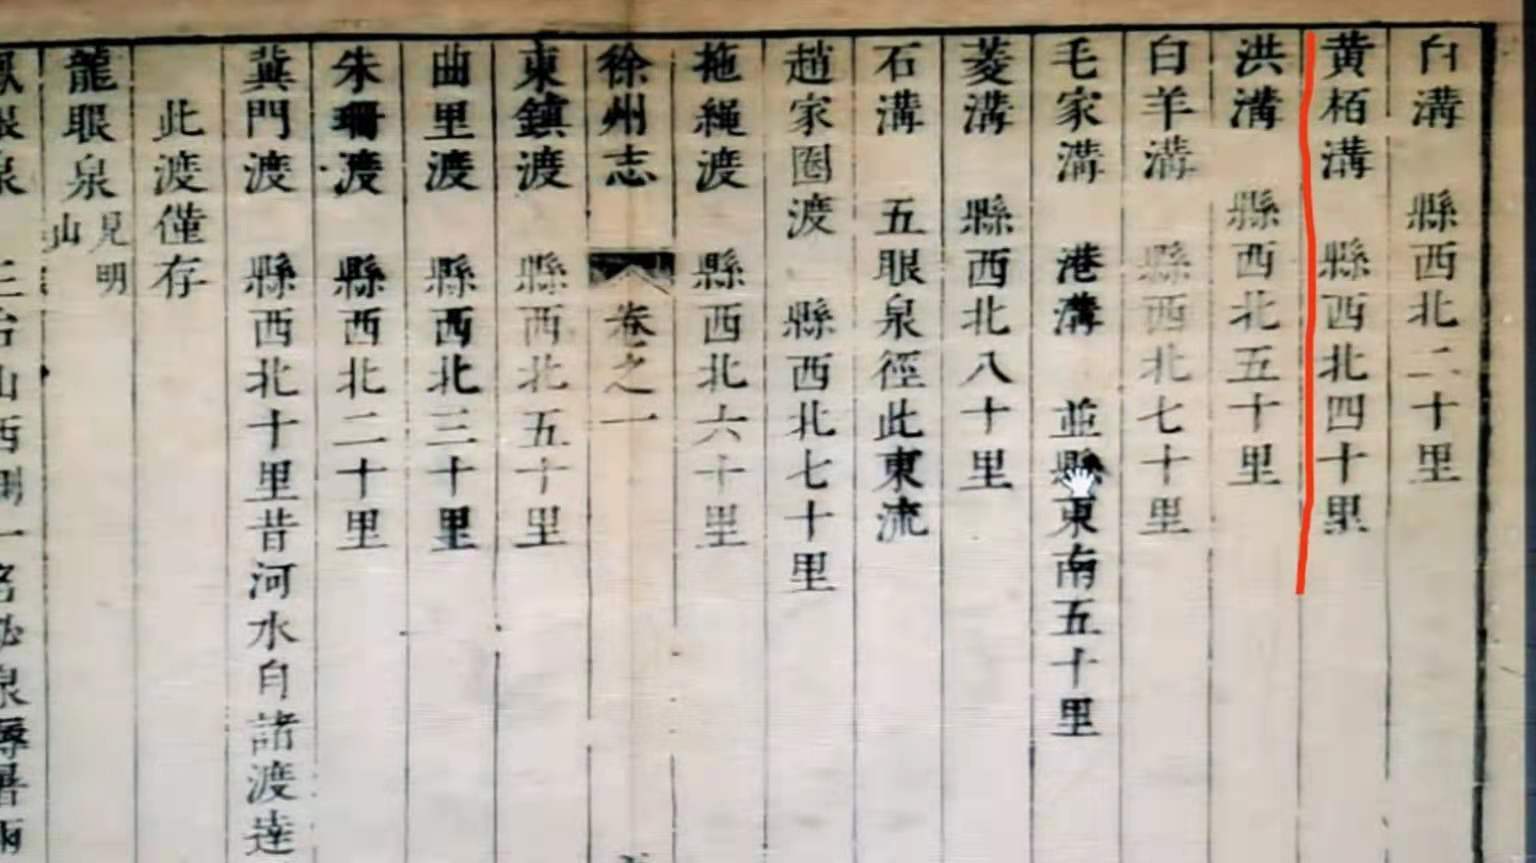 白溝　縣西北二十里
黄栢溝　縣西北四十里
洪溝　縣西北五十里
白羊溝　縣西北七十里
毛家溝　港溝　並縣東南五十里
菱溝　縣西北八十里
石溝　五眼泉徑此東流
趙家圈渡　縣西北七十里
拖繩渡　縣西北六十里
徐州志　卷之一
東鎮渡　縣西北五十里
曲里渡　縣西北三十里
朱珊渡　縣西北二十里
冀門渡　縣西北十里昔河水自諸渡達
此渡僅存
龍眼泉　見明山
眼泉　三台山西側一名泉